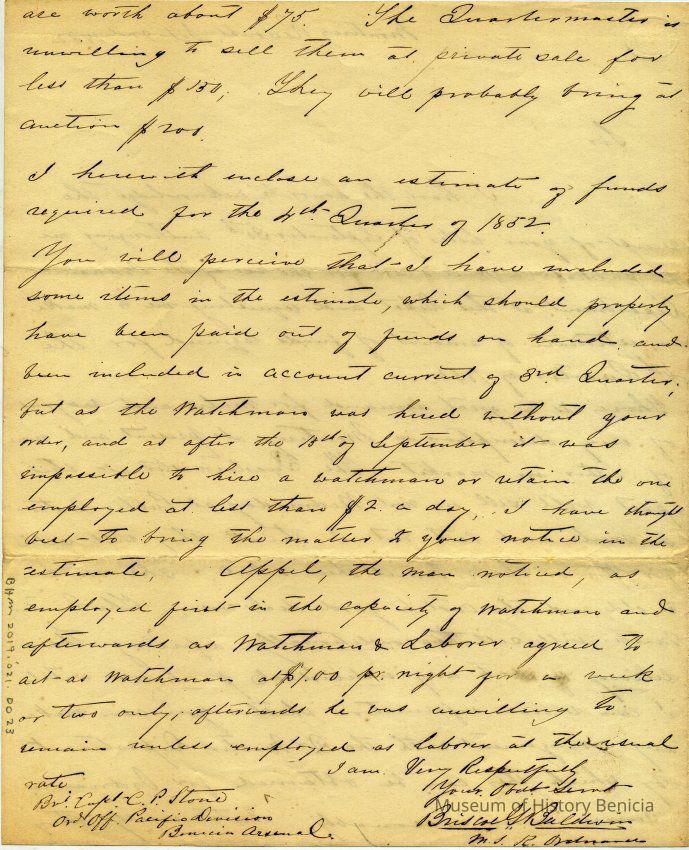 are worth about $75. The Quartermaster is
unwilling to sell them at private sale for
less than $150; They will probably bring at
auction $200.
I herewith enclose an estimate of funds
required for the 4th Quarter of 1852.
You will perceive that I have included
some items in the estimate, which should properly
have been paid out of funds on hand and
been included in account current of 3rd Quarter;
but as the Watchman was hired without your
order, and as after the 15th of September it was
impossible to hire a watchman or retain the one
employed at less than $2. a day, I have thought
best to bring the matter to your notice in the
estimate. Appel, the man noticed, as
employed first in the capacity of Watchman and
afterwards as Watchman & Laborer agreed to
act as Watchman at $1.00 pr. night for a week
or two only, afterwards he was unwilling to
remain unless employed as laborer at the usual
rate
I am Very Respectfully
Your Obdt Servt
Briscoe G. Baldwin
M.S.K. Ordnance
Bvt. Capt. C. P. Stone
Ord. Off. Pacific Division
Benicia Arsenal.
BHM 2019.021.0023
Museum of History Benicia